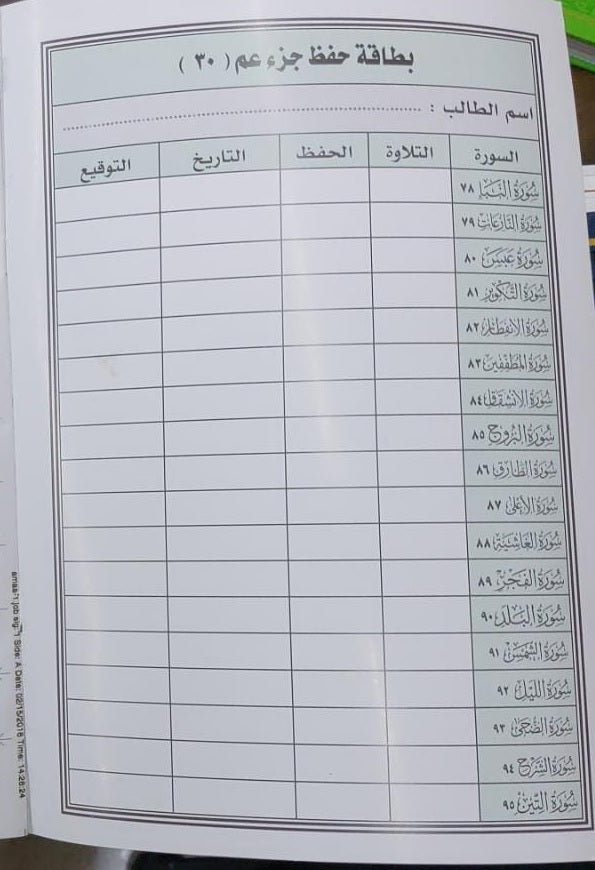 بطاقة حفظ جزء عم ( ٣٠ )
اسم الطالب : ........................................................................
السورة التلاوة الحفظ التاريخ التوقيع
سورة النبإ ٧٨
سورة النازعات ٧٩
سورة عبس ٨٠
سورة التكوير ٨١
سورة الانفطار ٨٢
سورة المطففين ٨٣
سورة الانشقاق ٨٤
سورة البروج ٨٥
سورة الطارق ٨٦
سورة الأعلى ٨٧
سورة الغاشية ٨٨
سورة الفجر ٨٩
سورة البلد ٩٠
سورة الشمس ٩١
سورة الليل ٩٢
سورة الضحى ٩٣
سورة الشرح ٩٤
سورة التين ٩٥
Side: A Date: 02/15/2018 Time: 14:26:24